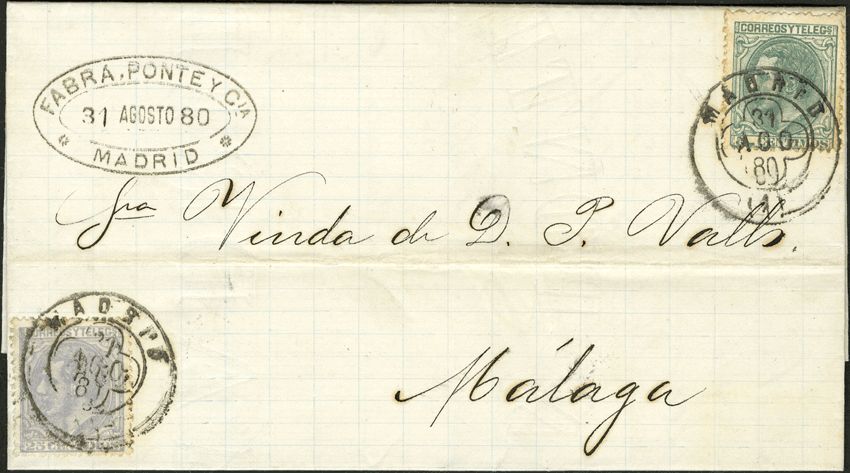 CORREOS Y TELEGS
MADRID
31
AGO
80
FABRA, PONTE Y CIA
31 AGOSTO 80
MADRID
Sra Viuda de D. P. Valls.
Málaga
MADRID
31
AGO
80
CORREOS Y TELEGS
25